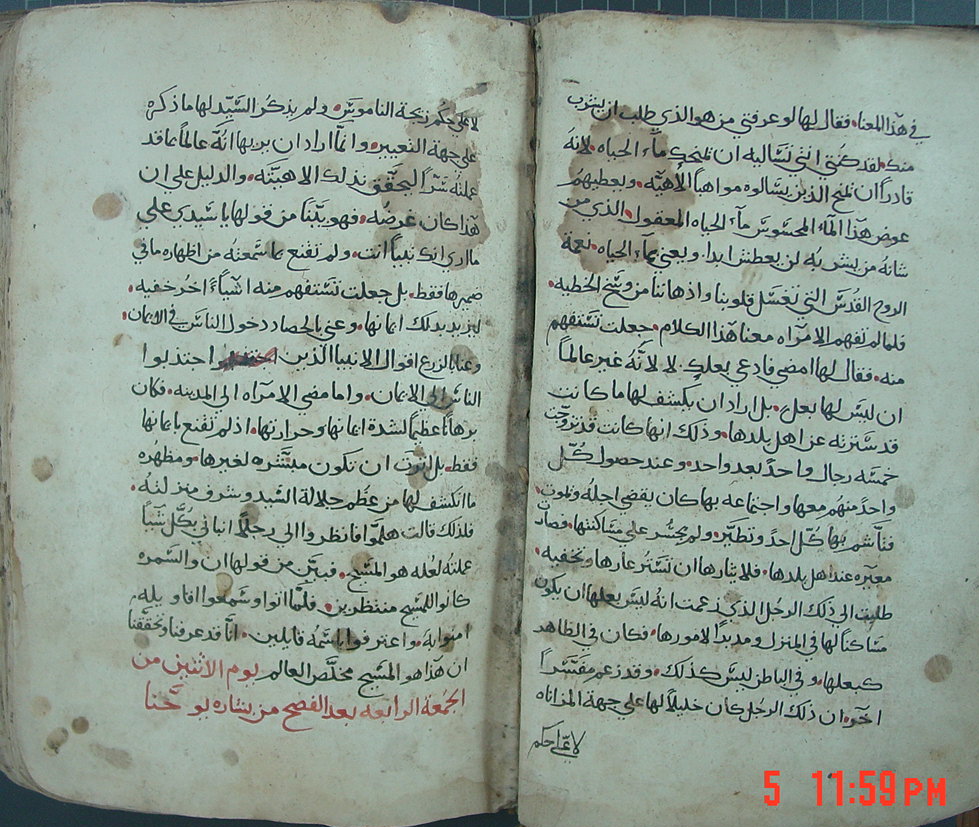 في هذا المعنا فقال لها لو عرفتي من هو الذي طلب ان يشرب
منك لقد كنتي انتي تساليه ان يمنحك مآء الحياه لانه
قادراً ان يمنح الذين يسالوه مواهباً الاهيّه ويعطيهم
عوض هذا المآء المحسوس مآء الحياه المعقول الذي من
شانه من يشربه لن يعطش ابدا ويعني بمآء الحياه نعمة
الروح القدس التي تغسل قلوبنا واذهاننا من وسخ الخطيه
فلما لم تفهم الامرآه معنا هذا الكلام جعلت تستفهم
منه فقال لها امضي فادعي بعلك لا لانّه غير عالماً
ان ليس لها بعل بل اراد ان يكشف لها ما كانت
قد سترته عن اهل بلدها وذلك انها كانت قد تزوجت
خمسه رجال واحداً بعد واحد وعند حصول كلّ
واحداً منهم معها واجتماعه بها كان يقضي اجله ويموت
فتأشم بها كلّ احد وتطيّر ولم يجسر على مساكنتها وصارت
معيّره عند اهل بلدها فلايثارها ان تستر عارها وتخفيه
طلبت الى ذلك الرجل الذي زعمت انه ليس بعلها ان يكون
ساكناً لها في المنزل ومدبراً لامورها فكان في الظاهر
كبعلها وفي الباطن ليس كذلك وقد زعم مفسّراً
اخر ان ذلك الرجل كان خليلاً لها على جهة المزاناه
لا على حكم
لا على حكم زيجة الناموس ولم يذكر السيّد لها ما ذكره
على جهة التعيير وانما اراد ان يريها انّه عالماً بما قد
عملته سرّاً ليحقّق بذلك الاهيته والدليل على ان
هذا كان غرضه فهو بيّناً من قولها يا سيدي على
ما ارى انك نبياً انت ولم تقنع بما سمعته من اظهاره ما في
ضميرها فقط بل جعلت تستفهم منه اشيآءً اخر خفيه
ليزيد بذلك ايمانها وعنى بالحصاد دخول الناس في الايمان
وعنا بالزرع اقوال الانبيا الذين اجتذبوا
الناس الى الايمان واما مضي الامرآه الى المدينه فكان
برهاناً عظيماً لشدة ايمانها وحرارتها اذ لم تقنع بايمانها
فقط بل اثرت ان تكون مبشره لغيرها ومظهره
ما انكشف لها من عظم جلالة السيد وشرف منزلته
فلذلك قالت هلمّوا فانظروا الى رجلاً انباني بكل شياً
عملته لعله هو المسيح فبيّن من قولها ان والسمره
كانوا للمسيح منتظرين فلمّا اتوا وسمعوا اقاويله
امنوا به واعترفوا باسمه قايلين انّا قد عرفنا وتحققنا
ان هذا هو المسيح مخلّص العالم يوم الاثنين من
الجمعة الرابعه بعد الفصح من بشاره يوحنا
5 11:59 PM